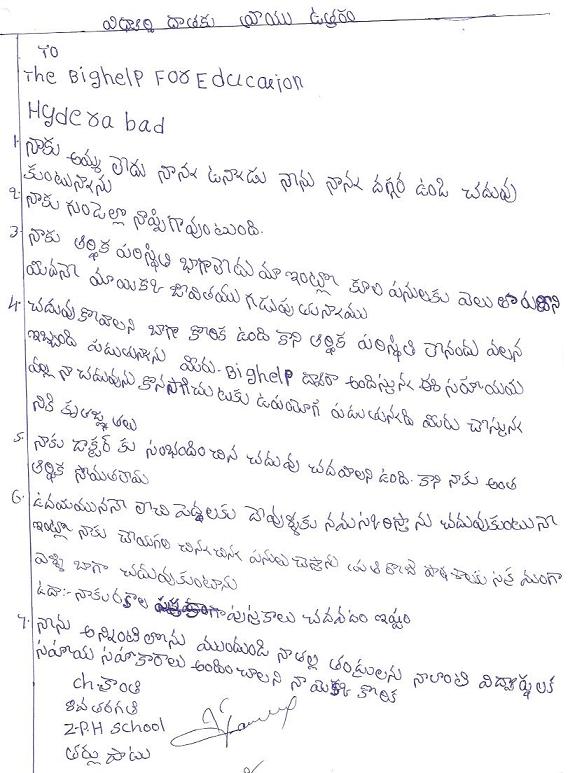 విద్యార్థి దాతకు వ్రాయు ఉత్తరం
TO
The BigHelp For Educarion
Hydera bad
1. నాకు అమ్మ లేదు నాన్న ఉన్నాడు నేను నాన్న దగ్గర ఉండి చదువు
కుంటున్నాను
2. నాకు గుండెల్లో నొప్పిగావుంటుంది.
3. నాకు ఆర్థిక పరిస్థితి బాగాలేదు మా ఇంట్లో కూలి పనులకు వెలు
మాయొక్క జీవితము గడుపు తున్నాము
4. చదువు కోవాలని బాగా కోరిక ఉంది కాని ఆర్థిక పరిస్థితి లేనందు వల్లన
ఇబ్బంది పడుతున్నాను మీరు. BigHelp ద్వారా అందిస్తున్న ఈ సహాయము
వల్ల నా చదువును కొనసాగించుటకు ఉపయోగ పడుతున్నది మీరు చేస్తున్న
నికి కృతజ్ఞతలు
5. నాకు డాక్టర్ కు సంభందించిన చదువు చదవాలని ఉంది. కాని నాకు అంత
ఆర్థిక స్తోమతలేదు
6. ఉదయముననే లేచి పెద్దలకు దేవుళ్ళకు నమస్కరిస్తాను చదువుకుంటునా
ఇంట్లో నాకు చేయగల చిన్న చిన్న పనులు చేస్తాను ప్రతి రోజు పాఠశాలకు సక్ర మంగా
వెళ్ళి బాగా చదువుకుంటాను
ఉదా:- నాకు రకాల పుస్తకాలు చదవడం ఇష్టం
7. నేను అన్నింటిలోను ముందుండి నాతల్లి తండ్రులను నాలాంటి విద్యార్థులకు
సహాయ సహకారాలు అందించాలని నా యొక్క కోరిక
ch శాంతి
8వ తరగతి
Z.P.H School
తర్లుపాడు